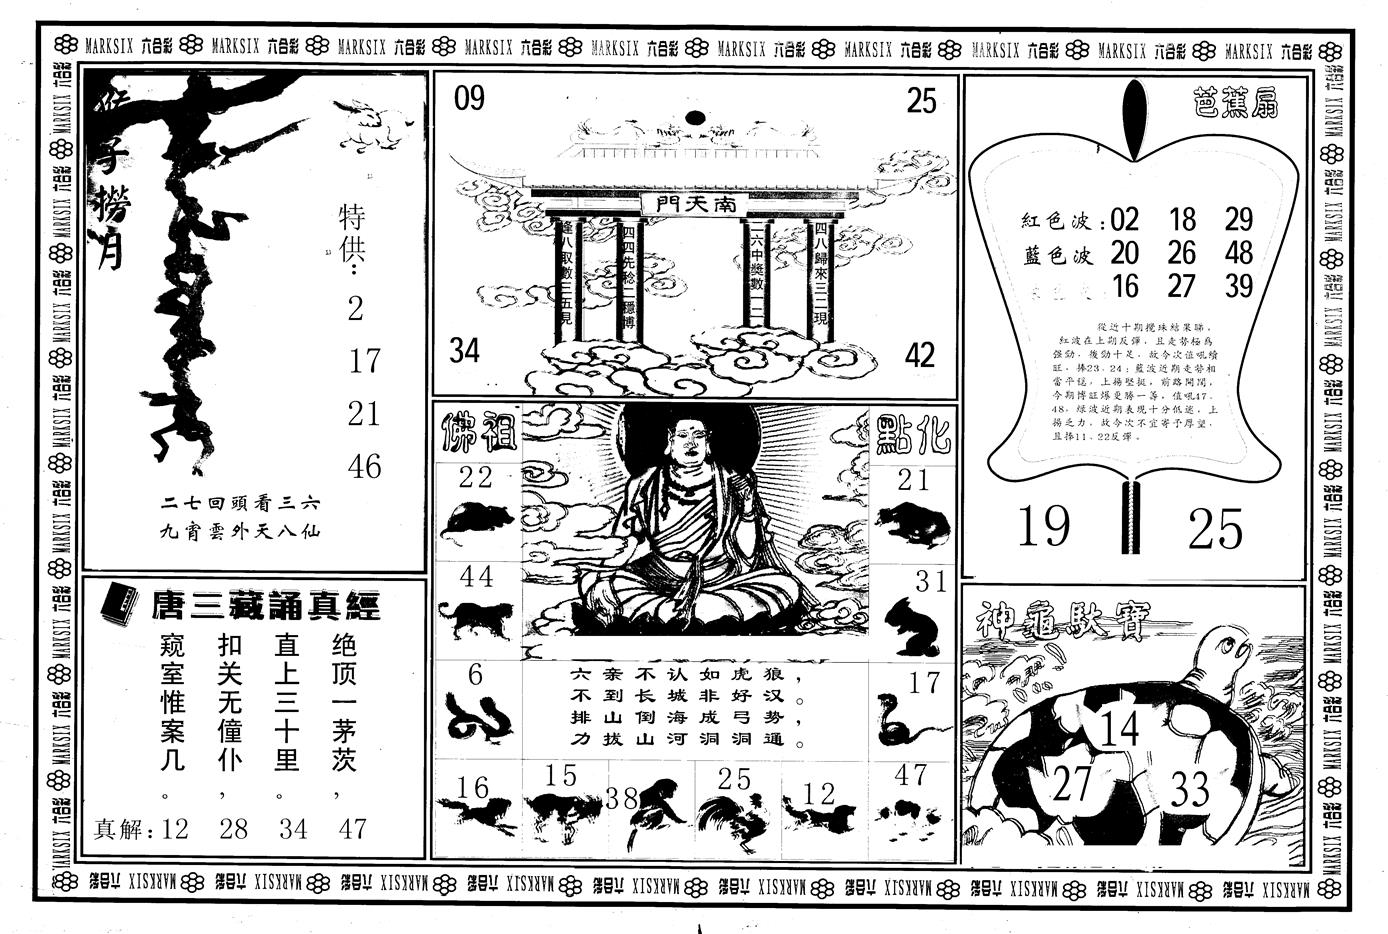 MARKSIX 六合彩 MARKSIX 六合彩 MARKSIX 六合彩 MARKSIX 六合彩 MARKSIX 六合彩 MARKSIX 六合彩 MARKSIX 六合彩 MARKSIX 六合彩 MARKSIX 六合彩 MARKSIX 六合彩
猴子撈月
特供：
2
17
21
46
二七回頭看三六
九霄雲外天八仙
09
25
南天門
逢八取數三五見
四四先稔二穩博
二六中獎數一二
四八歸來三二現
34
42
芭蕉扇
紅色波：02 18 29
藍色波 20 26 48
16 27 39
從近十期攪珠結果睇，
紅波在上期反彈，且走勢極為
強勁，後勁十足，故今次值吼續
旺，捧23、24；藍波近期走勢相
當平穩，上揚堅挺，前路開闊，
今期博旺爆更勝一等，值吼47、
48，綠波近期表現十分低迷，上
揚乏力，故今次不宜寄予厚望，
且捧11、22反彈。
19
25
佛祖
點化
22
21
44
31
6
17
六亲不认如虎狼，
不到长城非好汉。
排山倒海成弓势，
力拔山河洞洞通。
16
15
38
25
12
47
唐三藏誦真經
绝顶一茅茨，
直上三十里。
扣关无僮仆，
窥室惟案几。
真解：12 28 34 47
神龜馱寶
14
27
33
MARKSIX 六合彩 MARKSIX 六合彩 MARKSIX 六合彩 MARKSIX 六合彩 MARKSIX 六合彩 MARKSIX 六合彩 MARKSIX 六合彩 MARKSIX 六合彩 MARKSIX 六合彩 MARKSIX 六合彩